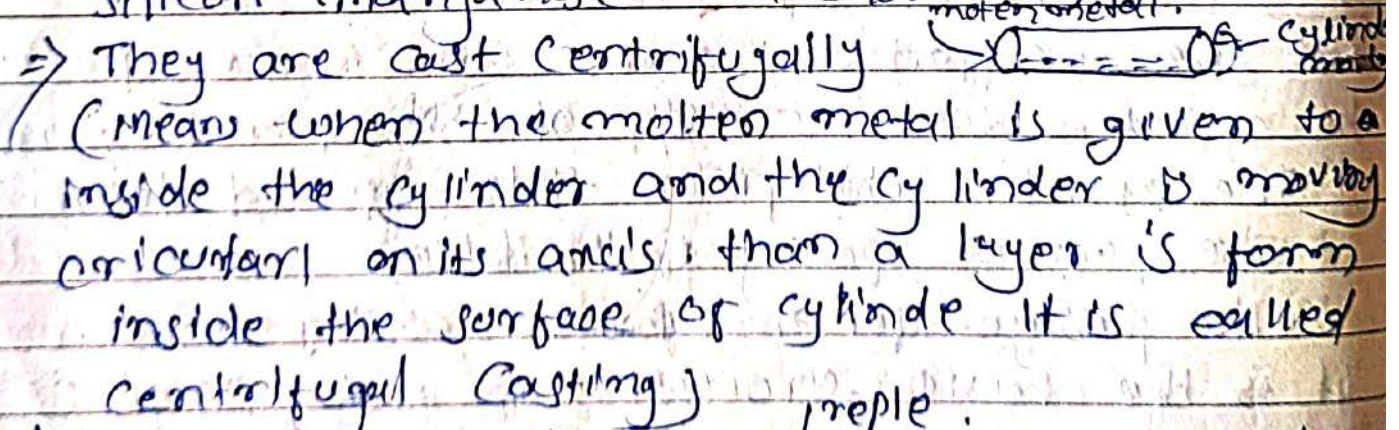 moten metall.
=> They are cast Centrifugally
Cylind
(means when the molten metal is given to a
inside the cylinder and the cylinder is moving
on its axis. than a layer is form
inside the surface of cylinde It is called
Centrifugal Casting)
reple.